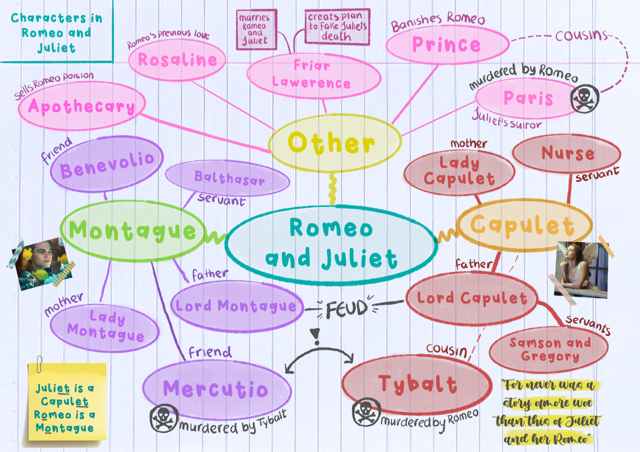 Characters in
Romeo and
Juliet
marries
Romeo
and
Juliet
creates plan
to fake Juliet's
death
Banishes Romeo
Prince
cousins
Romeo's previous love
Rosaline
Friar
Lawerence
murdered by Romeo
Paris
Juliet's suitor
sells Romeo poison
Apothecary
Other
friend
Benevolio
Balthasar
servant
mother
Lady
Capulet
Nurse
servant
Montague
Romeo
and Juliet
Capulet
father
Lord Montague
FEUD
father
Lord Capulet
mother
Lady
Montague
servants
Samson and
Gregory
friend
Mercutio
murdered by Tybalt
!
cousin
Tybalt
murdered by Romeo
Juliet is a
Capulet
Romeo is a
Montague
"For never was a
story of more woe
than this of Juliet
and her Romeo"